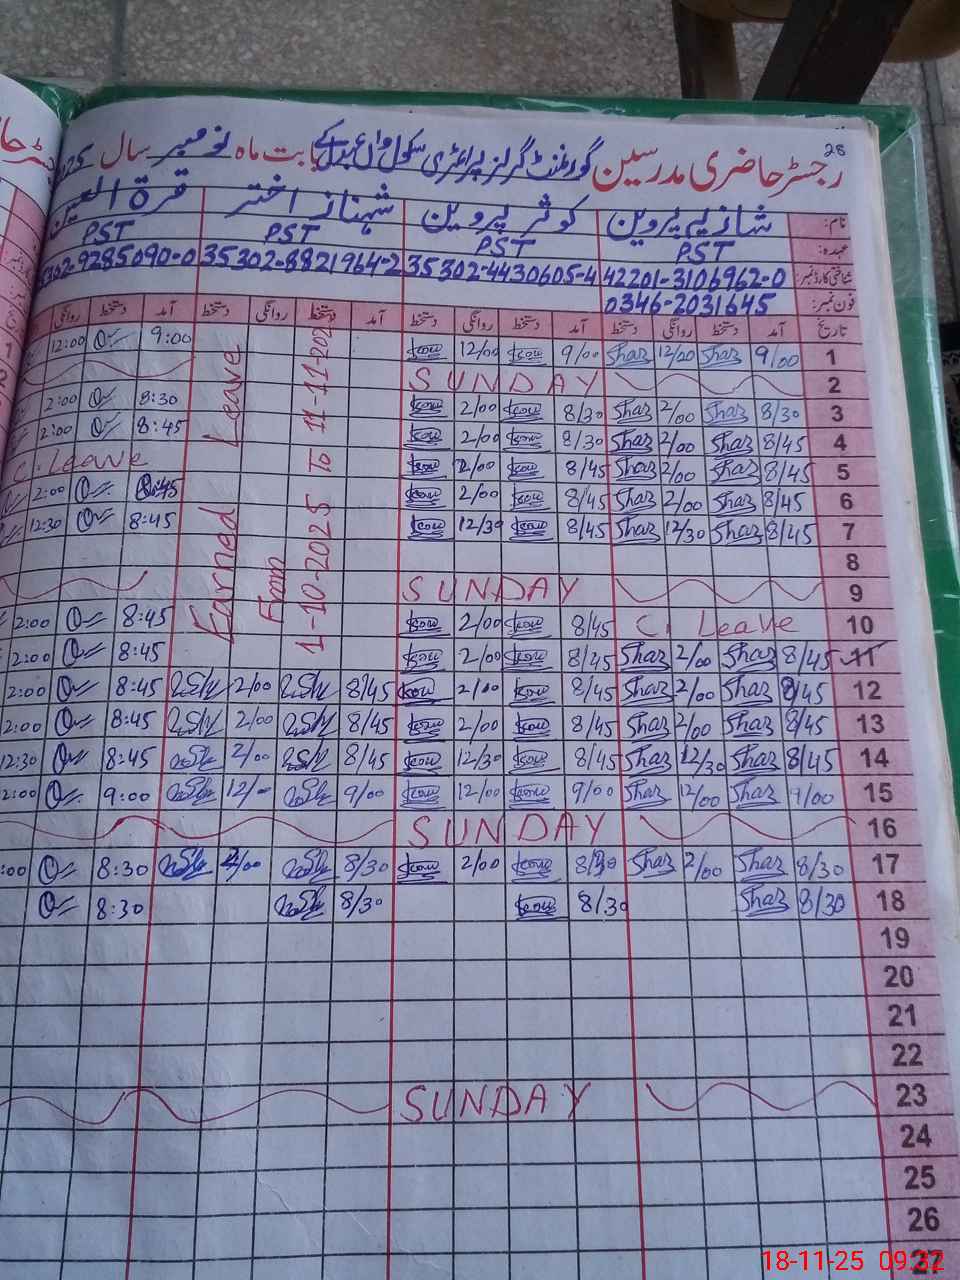 28
رجسٹر حاضری مدرسین گورنمنٹ گرلز پرائمری سکول بابت ماہ نومبر سال
نام: شازیہ پروین کوثر پروین شہناز اختر قرۃ العین
عہدہ: PST PST PST PST
شناختی کارڈ نمبر: 42201-3106962-0 35302-4430605-4 35302-8821964-2 302-9285090-0
فون نمبر: 0346-2031645
تاریخ آمد دستخط روانگی دستخط آمد دستخط روانگی دستخط آمد دستخط روانگی دستخط آمد دستخط روانگی
1 9/00 Shaz 12/00 Shaz 9/00 kow 12/00 kow 9:00 12:00
2 SUNDAY
3 8/30 Shaz 2/00 Shaz 8/30 kow 2/00 kow 8:30 2:00
4 8/45 Shaz 2/00 Shaz 8/30 kow 2/00 kow 8:45 2:00
5 8/45 Shaz 2/00 Shaz 8/45 kow 2/00 kow C. Leave
6 8/45 Shaz 2/00 Shaz 8/45 kow 2/00 kow 8:45 2:00
7 8/45 Shaz 12/30 Shaz 8/45 kow 12/30 kow 8:45 12:30
8
9 SUNDAY
10 C. Leave 8/45 kow 2/00 kow 8:45 2:00
11 8/45 Shaz 2/00 Shaz 8/45 kow 2/00 kow 8:45 2:00
Earned Leave
From
1-10-2025 To 11-11-202
12 8/45 Shaz 2/00 Shaz 8/45 kow 2/00 kow 8/45 2/00 8:45 2:00
13 8/45 Shaz 2/00 Shaz 8/45 kow 2/00 kow 8/45 2/00 8:45 2:00
14 8/45 Shaz 12/30 Shaz 8/45 kow 12/30 kow 8/45 2/00 8:45 12:30
15 9/00 Shaz 12/00 Shaz 9/00 kow 12/00 kow 9/00 12/00 9:00 2:00
16 SUNDAY
17 8/30 Shaz 2/00 Shaz 8/30 kow 2/00 kow 8/30 2/00 8:30 :00
18 8/30 Shaz 8/30 kow 8/30 8:30
19
20
21
22
23 SUNDAY
24
25
26
27
18-11-25 09:32